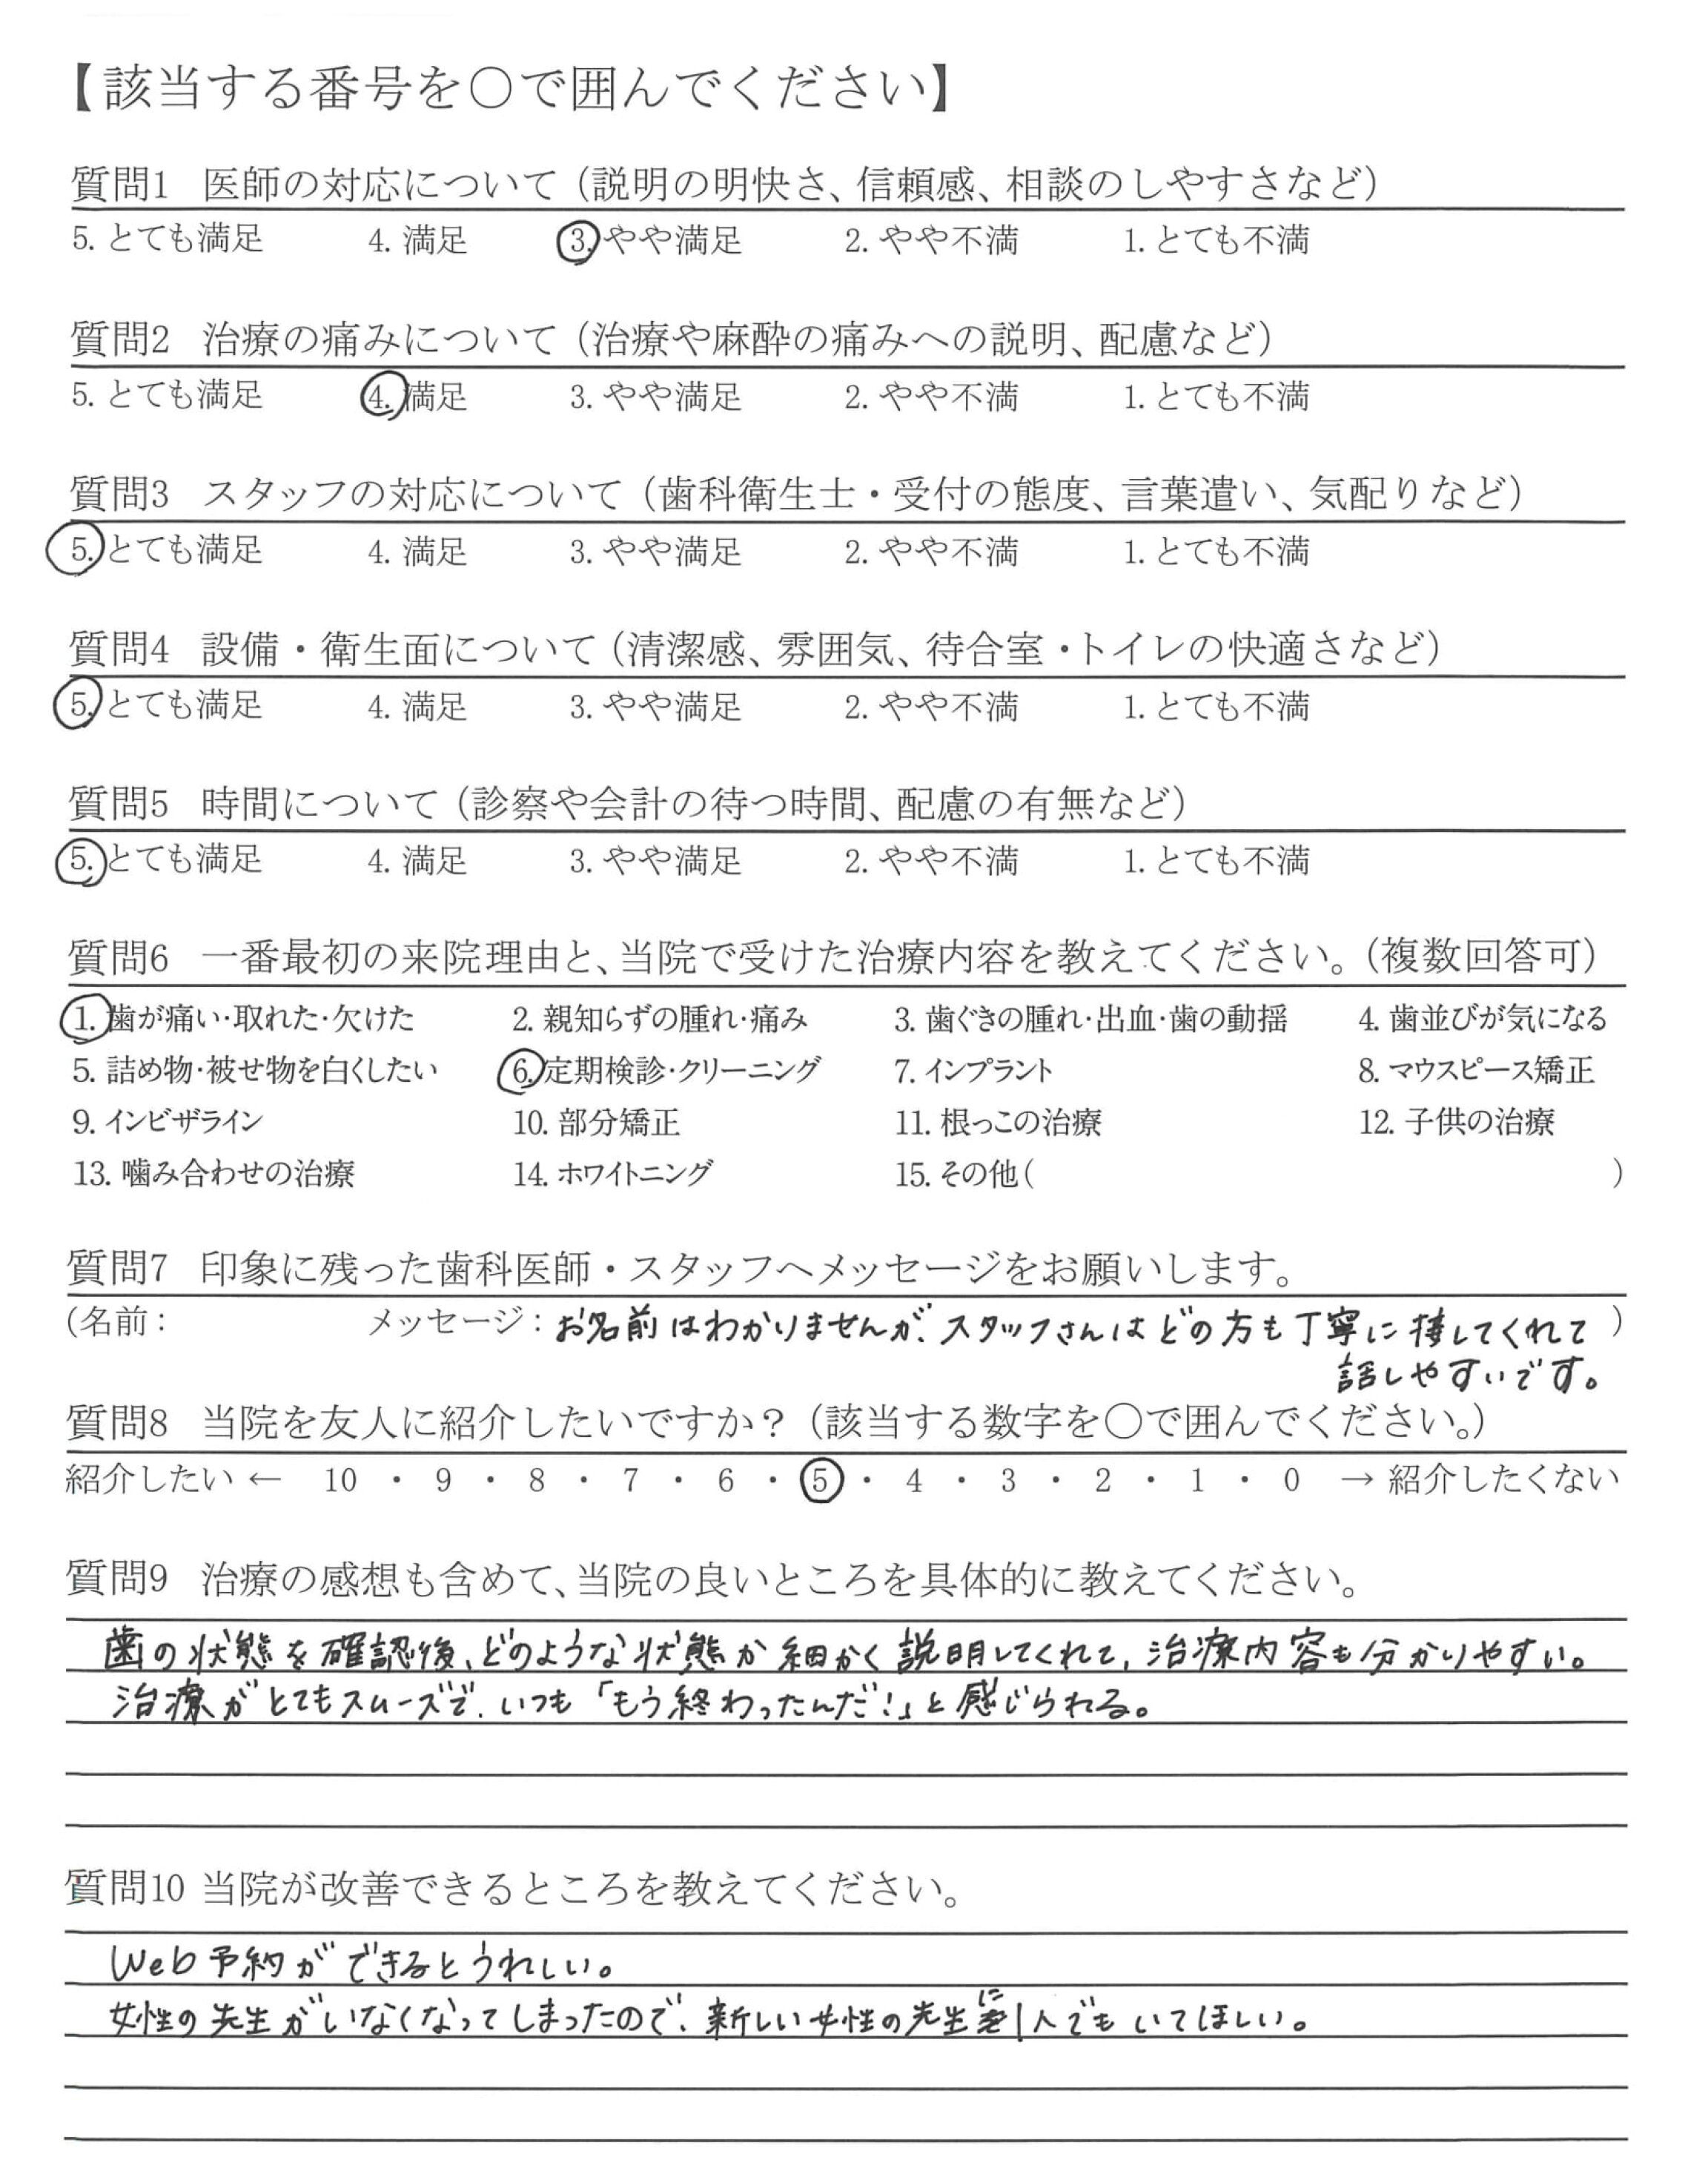 【該当する番号を○で囲んでください】
質問1 医師の対応について（説明の明快さ、信頼感、相談のしやすさなど）
5. とても満足 4. 満足 3. やや満足 2. やや不満 1. とても不満
質問2 治療の痛みについて（治療や麻酔の痛みへの説明、配慮など）
5. とても満足 4. 満足 3. やや満足 2. やや不満 1. とても不満
質問3 スタッフの対応について（歯科衛生士・受付の態度、言葉遣い、気配りなど）
5. とても満足 4. 満足 3. やや満足 2. やや不満 1. とても不満
質問4 設備・衛生面について（清潔感、雰囲気、待合室・トイレの快適さなど）
5. とても満足 4. 満足 3. やや満足 2. やや不満 1. とても不満
質問5 時間について（診察や会計の待つ時間、配慮の有無など）
5. とても満足 4. 満足 3. やや満足 2. やや不満 1. とても不満
質問6 一番最初の来院理由と、当院で受けた治療内容を教えてください。（複数回答可）
1. 歯が痛い・取れた・欠けた 2. 親知らずの腫れ・痛み 3. 歯ぐきの腫れ・出血・歯の動揺 4. 歯並びが気になる
5. 詰め物・被せ物を白くしたい 6. 定期検診・クリーニング 7. インプラント 8. マウスピース矯正
9. インビザライン 10. 部分矯正 11. 根っこの治療 12. 子供の治療
13. 噛み合わせの治療 14. ホワイトニング 15. その他（ ）
質問7 印象に残った歯科医師・スタッフへメッセージをお願いします。
（名前： メッセージ：お名前はわかりませんが、スタッフさんはどの方も丁寧に接してくれて ）
話しやすいです。
質問8 当院を友人に紹介したいですか？（該当する数字を○で囲んでください。）
紹介したい ← 10 ・ 9 ・ 8 ・ 7 ・ 6 ・ 5 ・ 4 ・ 3 ・ 2 ・ 1 ・ 0 → 紹介したくない
質問9 治療の感想も含めて、当院の良いところを具体的に教えてください。
歯の状態を確認後、どのような状態か細かく説明してくれて、治療内容も分かりやすい。
治療がとてもスムーズで、いつも「もう終わったんだ！」と感じられる。
質問10 当院が改善できるところを教えてください。
Web予約ができるとうれしい。
女性の先生がいなくなってしまったので、新しい女性の先生に1人でもいてほしい。